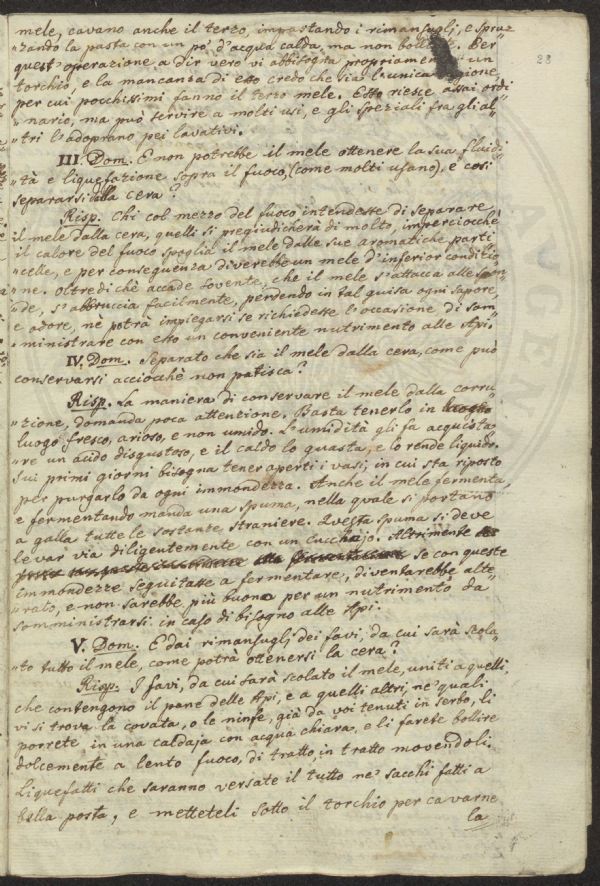 mele, cavano anche il terzo, impastando i rimansuglj, e spruz-
"zando la pasta con un po' d'acqua calda, ma non Per
28
quest'operazione a dir vero vi abbisogna propriamente un
torchio, e la mancanza di esso credo che sia l'unica ragione,
per cui pochissimi fanno il terzo mele. Esso riesce assai ordi-
"nario, ma può servire a molti usi, e gli speziali fra gli al-
"tri l'adoprano pei lavativi.
III. Dom. E non potrebbe il mele ottenere la sua fluidi-
"tà e liquefazione sopra il fuoco, (come molti usano), e così
separarsi dalla cera?
Risp. Chi col mezzo del fuoco intendesse di separare
il mele dalla cera, quelli si pregiudicherà di molto, imperciocchè
il calore del fuoco spoglia il mele dalle sue aromatiche parti-
"celle, e per conseguenza diverebbe un mele d'inferior condizio-
"ne. Oltredichè accade sovente, che il mele s'attacca alle
"de, s'abbruccia facilmente, perdendo in tal guisa ogni sapore,
e odore, nè potrà impiegarsi se richiedesse l'occasione di som-
"ministrare con esso un conveniente nutrimento alle Api.
IV. Dom. Separato che sia il mele dalla cera, come può
conservarsi acciocchè non patisca?
Risp. La maniera di conservare il mele dalla corru-
"zione, domanda poca attenzione. Basta tenerlo in
luogo fresco, arioso, e non umido. L'umidità gli fa acquista-
"re un acido disgustoso, e il caldo lo guasta, e lo rende liquido.
Sui primi giorni bisogna tener aperti i vasi, in cui sta riposto
per purgarlo da ogni immondezza. Anche il mele fermenta,
e fermentando manda una spuma, nella quale si portano
a galla tutte le sostanze straniere. Questa spuma si deve
levar via diligentemente con un cucchajo. Altrimente
se con queste
immondezze seguitasse a fermentare, diventarebbe alte-
"rato, e non sarebbe più buono per un nutrimento da
somministrarsi in caso di bisogno alle Api.
V. Dom. E dai rimansuglj dei favi, da cui sarà scola-
"to tutto il mele, come potrà ottenersi la cera?
Risp. I favi, da cui sarà scolato il mele, uniti a quelli,
che contengono il pane delle Api, e a quelli altri, ne' quali
vi si trova la covata, o le ninfe, già da voi tenuti in serbo, li
porrete in una caldaja con acqua chiara, e li farete bollire
dolcemente a lento fuoco, di tratto, in tratto movendoli.
Liquefatti che saranno versate il tutto ne' sacchi fatti a
bella posta, e metteteli sotto il torchio per cavarne
la